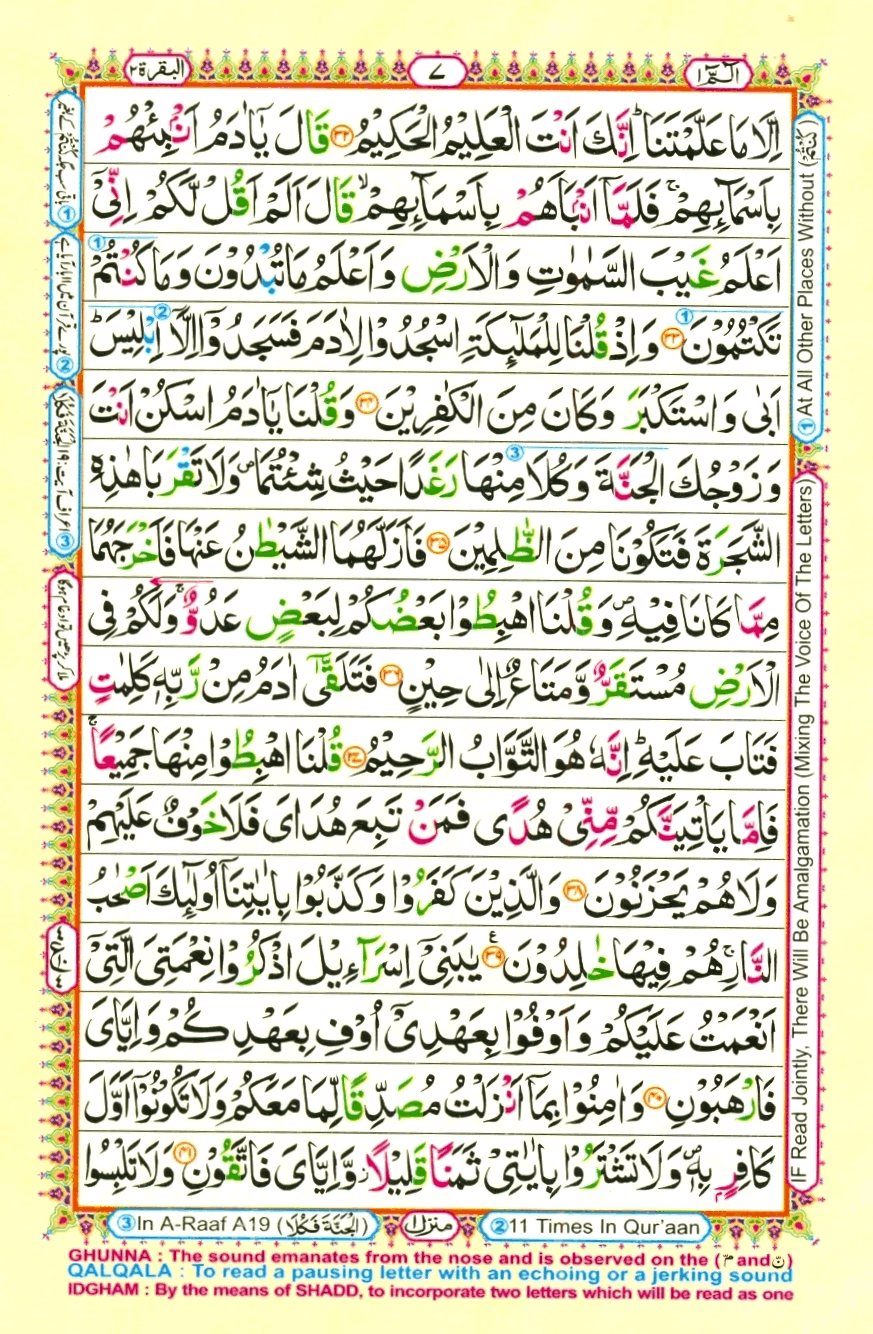 الٓمّٓ ١
٧
البقرة ٢
اِلَّا مَا عَلَّمْتَنَا ؕ اِنَّكَ اَنْتَ الْعَلِیْمُ الْحَكِیْمُ ﴿۳۲﴾ قَالَ یٰۤاٰدَمُ اَنْۢبِئْهُمْ
بِاَسْمَآىِٕهِمْ ۚ فَلَمَّاۤ اَنْۢبَاَهُمْ بِاَسْمَآىِٕهِمْ ۙ قَالَ اَلَمْ اَقُلْ لَّكُمْ اِنِّیْۤ
اَعْلَمُ غَیْبَ السَّمٰوٰتِ وَالْاَرْضِ وَاَعْلَمُ مَا تُبْدُوْنَ وَمَا كُنْتُمْ
تَكْتُمُوْنَ ﴿۳۳﴾ وَاِذْ قُلْنَا لِلْمَلٰٓىِٕكَةِ اسْجُدُوْا لِاٰدَمَ فَسَجَدُوْۤا اِلَّاۤ اِبْلِیْسَ ؕ
اَبٰی وَاسْتَكْبَرَ وَكَانَ مِنَ الْكٰفِرِیْنَ ﴿۳۴﴾ وَقُلْنَا یٰۤاٰدَمُ اسْكُنْ اَنْتَ
وَزَوْجُكَ الْجَنَّةَ وَكُلَا مِنْهَا رَغَدًا حَیْثُ شِئْتُمَا ۪ وَلَا تَقْرَبَا هٰذِهِ
الشَّجَرَةَ فَتَكُوْنَا مِنَ الظّٰلِمِیْنَ ﴿۳۵﴾ فَاَزَلَّهُمَا الشَّیْطٰنُ عَنْهَا فَاَخْرَجَهُمَا
مِمَّا كَانَا فِیْهِ ۪ وَقُلْنَا اهْبِطُوْا بَعْضُكُمْ لِبَعْضٍ عَدُوٌّ ۚ وَلَكُمْ فِی
الْاَرْضِ مُسْتَقَرٌّ وَّمَتَاعٌ اِلٰی حِیْنٍ ﴿۳۶﴾ فَتَلَقّٰۤی اٰدَمُ مِنْ رَّبِّهٖ كَلِمٰتٍ
فَتَابَ عَلَیْهِ ؕ اِنَّهٗ هُوَ التَّوَّابُ الرَّحِیْمُ ﴿۳۷﴾ قُلْنَا اهْبِطُوْا مِنْهَا جَمِیْعًا ۚ
فَاِمَّا یَاْتِیَنَّكُمْ مِّنِّیْ هُدًی فَمَنْ تَبِعَ هُدَایَ فَلَا خَوْفٌ عَلَیْهِمْ
وَلَا هُمْ یَحْزَنُوْنَ ﴿۳۸﴾ وَالَّذِیْنَ كَفَرُوْا وَكَذَّبُوْا بِاٰیٰتِنَاۤ اُولٰٓىِٕكَ اَصْحٰبُ
النَّارِ ۚ هُمْ فِیْهَا خٰلِدُوْنَ ﴿۳۹﴾ ع یٰبَنِیْۤ اِسْرَآءِیْلَ اذْكُرُوْا نِعْمَتِیَ الَّتِیْۤ
اَنْعَمْتُ عَلَیْكُمْ وَاَوْفُوْا بِعَهْدِیْۤ اُوْفِ بِعَهْدِكُمْ وَاِیَّایَ
فَارْهَبُوْنِ ﴿۴۰﴾ وَاٰمِنُوْا بِمَاۤ اَنْزَلْتُ مُصَدِّقًا لِّمَا مَعَكُمْ وَلَا تَكُوْنُوْۤا اَوَّلَ
كَافِرٍ بِهٖ ۪ وَلَا تَشْتَرُوْا بِاٰیٰتِیْ ثَمَنًا قَلِیْلًا ؗ وَّاِیَّایَ فَاتَّقُوْنِ ﴿۴۱﴾ وَلَا تَلْبِسُوا
① At All Other Places Without (كُنْتُمْ)
IF Read Jointly, There Will Be Amalgamation (Mixing The Voice Of The Letters)
② 11 Times In Qur'aan
منزل ١
③ In A-Raaf A19 (الْجَنَّةَ فَكُلَا)
GHUNNA : The sound emanates from the nose and is observed on the (مّ and نّ)
QALQALA : To read a pausing letter with an echoing or a jerking sound
IDGHAM : By the means of SHADD, to incorporate two letters which will be read as one